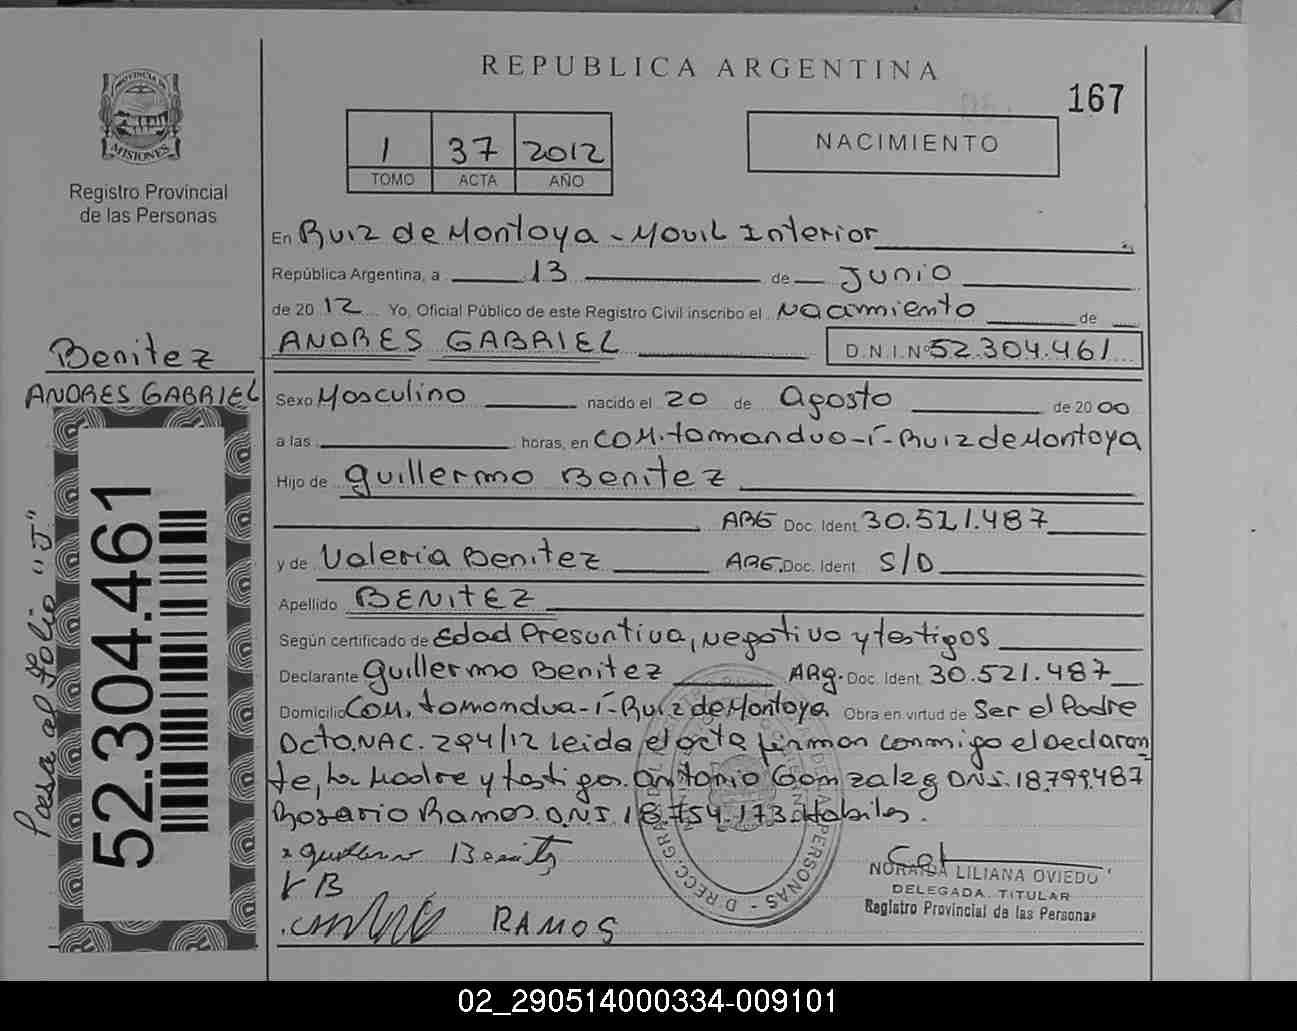 REPUBLICA ARGENTINA
167
1 37 2012
TOMO ACTA AÑO
NACIMIENTO
PROVINCIA DE MISIONES
Registro Provincial
de las Personas
En Ruiz de Montoya - Movil Interior
República Argentina, a 13 de Junio
de 2012 Yo, Oficial Público de este Registro Civil inscribo el Nacimiento de
ANDRES GABRIEL D.N.I.Nº 52.304.461
Benitez
ANDRES GABRIEL
Sexo Masculino nacido el 20 de Agosto de 2000
a las horas, en COM. tamanduo-í-Ruiz de Montoya
Hijo de Guillermo Benitez
ARG Doc. Ident. 30.521.487
y de Valeria Benitez ARG. Doc. Ident. S/D
Apellido BENITEZ
Según certificado de Edad Presuntiva, negativo y testigos
Declarante Guillermo Benitez ARG. Doc. Ident. 30.521.487
Domicilio COM. tamandua-í-Ruiz de Montoya Obra en virtud de Ser el Padre
Dcto. NAC. 294/12 Leida el acta firman conmigo el Declaran
te, la Madre y testigos. Antonio Gomzalez DNI. 18.799.487
Rosario Ramos. D.N.I. 18.754.173. Habiles.
x Guillermo Benitez
V B
RAMOS
NORAIDA LILIANA OVIEDO
DELEGADA TITULAR
Registro Provincial de las Personas
Pasa al Folio "J"
52.304.461
02_290514000334-009101